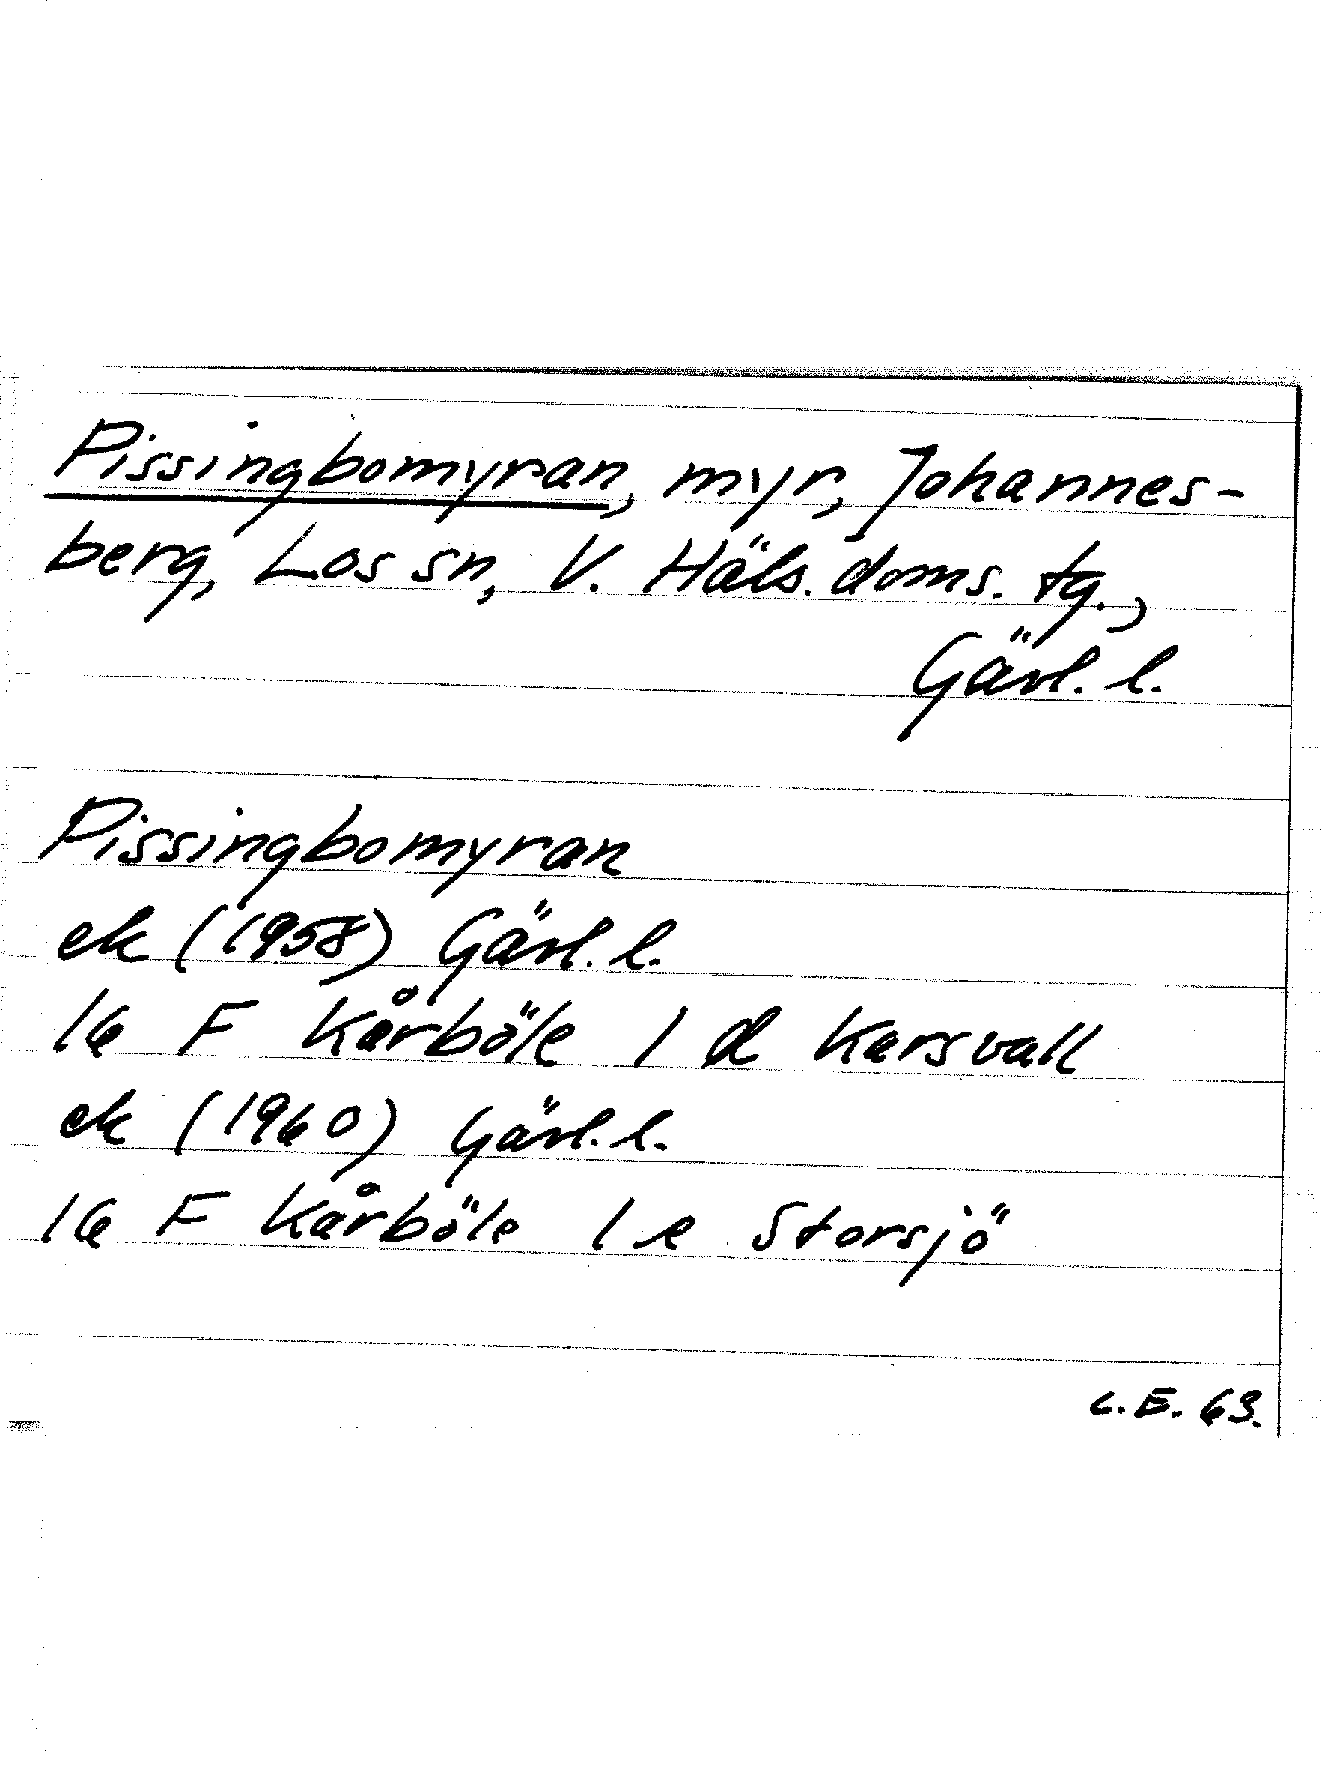 Pissingbomyran, myr, Johannes-
berg, Los sn, V. Häls. doms. tg.,
Gävl. l.
Pissingbomyran
ek (1958) Gävl. l.
16 F Kårböle 1 d Karsvall
ek (1960) Gävl. l.
16 F Kårböle 1 e Storsjö
C.E. 63.